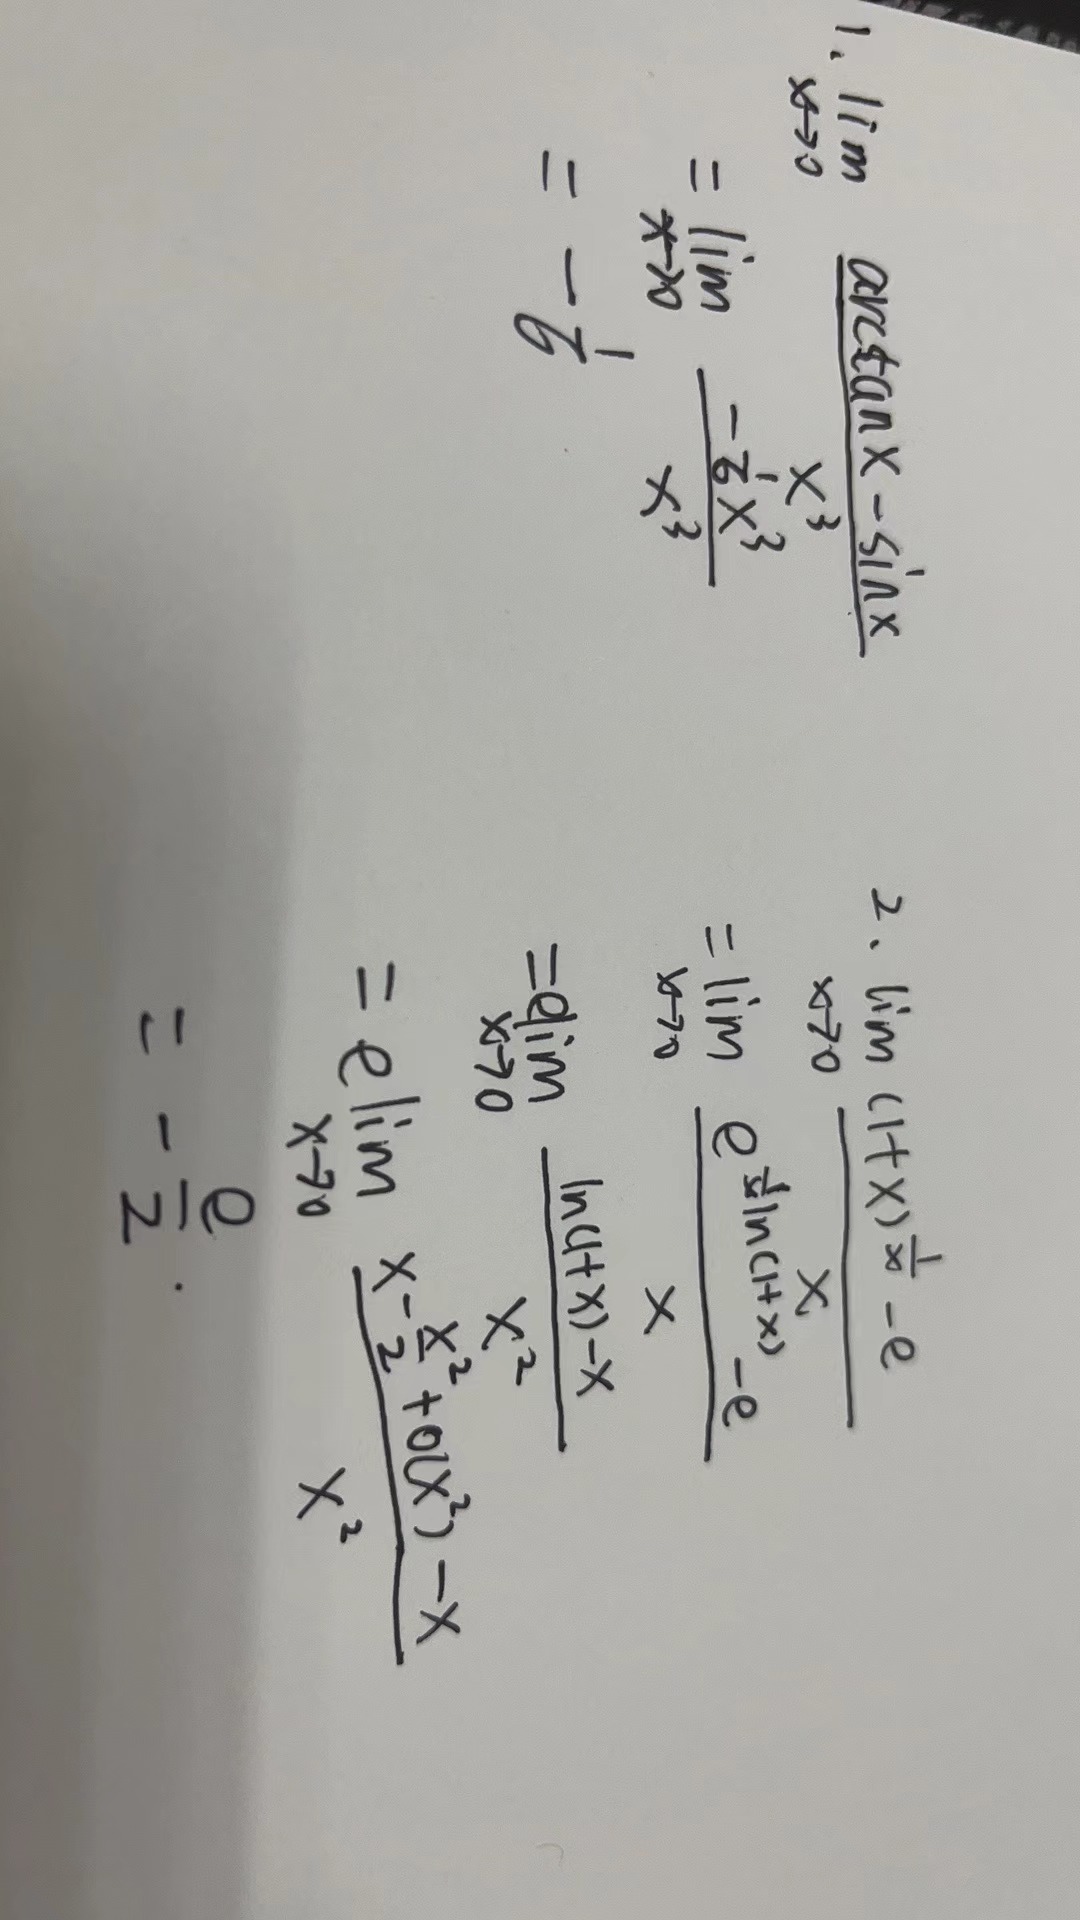 1. lim x→0 (arctan x - sin x)/x³
= lim x→0 (-1/6 x³)/x³
= -1/6
2. lim x→0 ((1+x)^(1/x) - e)/x
= lim x→0 (e^(1/x ln(1+x)) - e)/x
= e lim x→0 (ln(1+x) - x)/x²
= e lim x→0 (x - x²/2 + o(x²) - x)/x²
= -e/2.